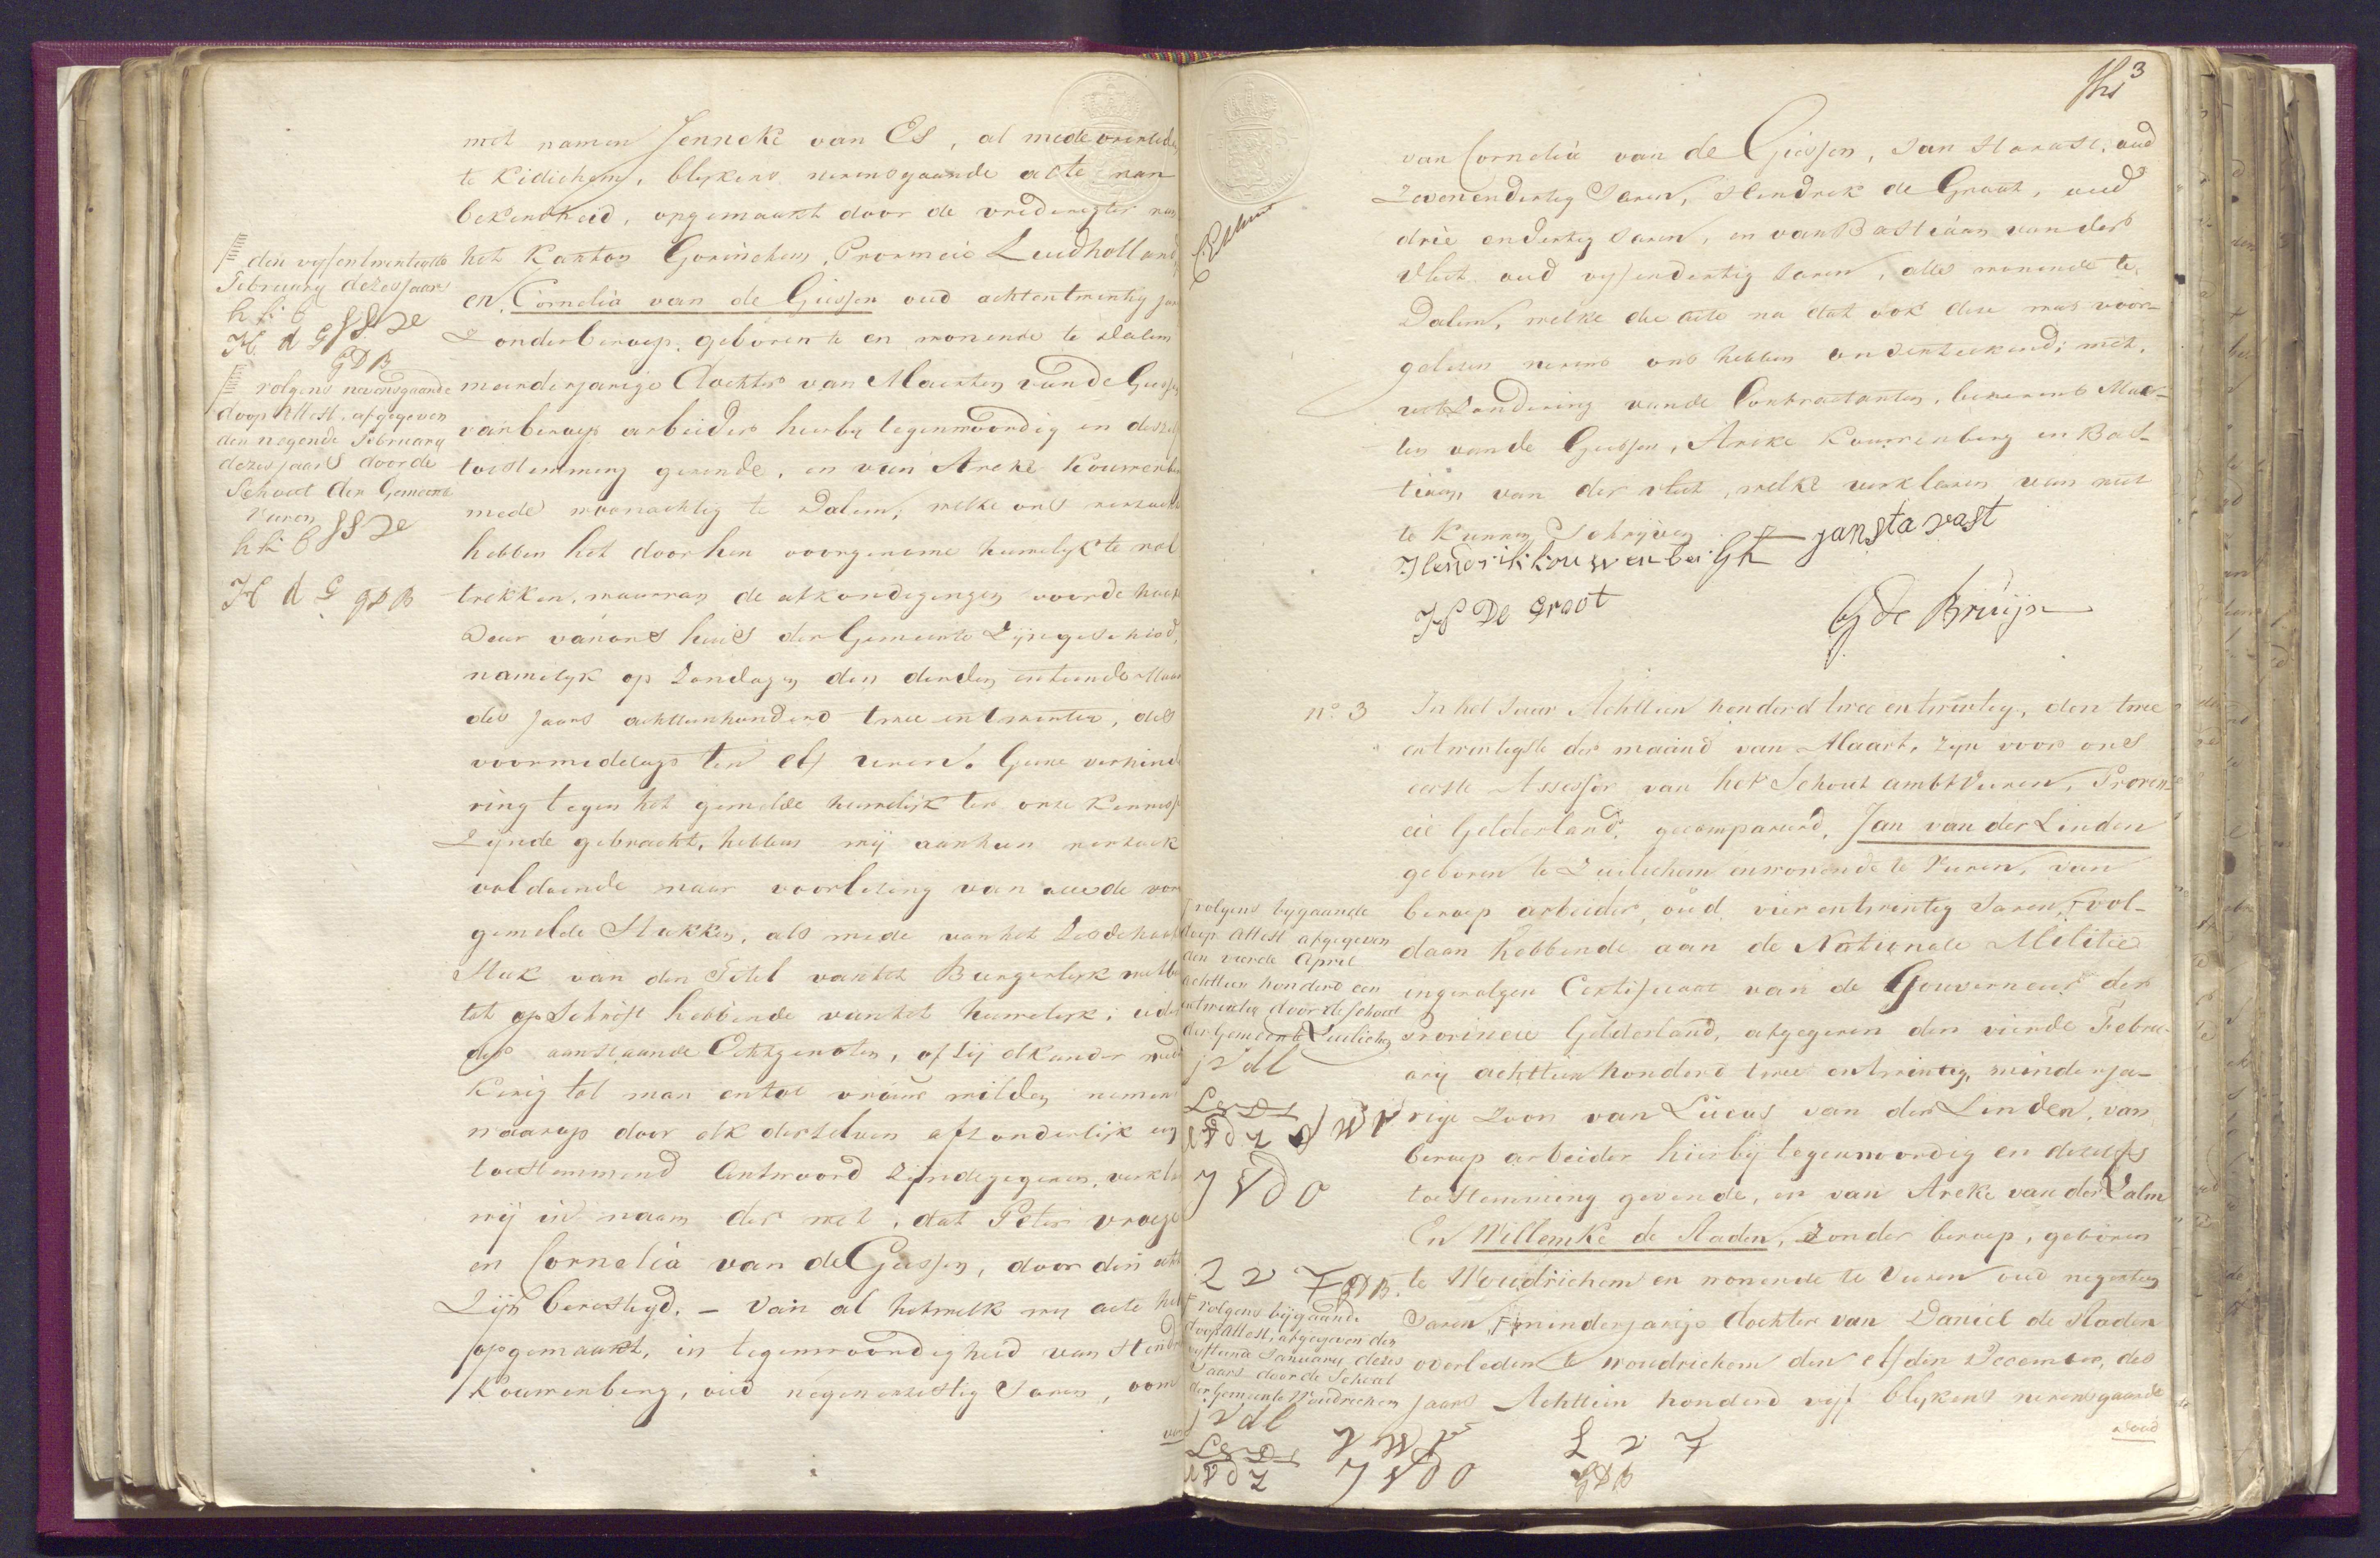 met namen Jenneke van Es, al mede overleden
te Kidichem, blykens nevensgaande acte van
bekendheid, opgemaakt door de vrederegter van
het Kanton Gorinchem, Provincie Zuidholland
en Cornelia van de Giessen oud achtentwintig jaren
Zonder beroep, geboren te en wonende te Dalem
meerderjarige dochter van Maerten van de Giessen
van beroep arbeider hierby tegenwoordig en deszelfs
toestemming gevende, en van Areke Kouwenberg
mede woonachtig te Dalem, welke ons verzocht
hebben het door hen voorgenome huwelyk te vol
trekken, waarvan de afkondigingen voor de hoofd
Deur van ons huis der Gemeente Zijn geschied,
namelyk op Zondagen den derden en tiende Maart
des jaars achttienhonderd twee en twintig, des
voormiddags ten elf uren. Geene verhinde
ring tegen het gemelde huwelijk ter onze Kennisse
Zijnde gebracht, hebben wij aan hun verzoek
voldoende naar voorlezing van alle de voor
gemelde Stukken, als mede van het Zesde hoofd
Stuk van den Titel van het Burgerlyk wetboek
tot opschrift hebbende van het huwelyk; ieder
der aanstaande Echtgenoten, of zij elkander weder
Kerig tot man en tot vrouw wilden nemen
waarop door elk derzelven afzonderlijk een
toestemmend Antwoord Zijnde gegeven, verklaren
wij in naam der wet, dat Peter vroege
en Cornelia van de Giessen, door den echt
Zijn bevestigd. – Van al hetwelk wij acte hebben
opgemaakt, in tegenwoordigheid van Hendrik
Kouwenberg, oud negenenzestig Jaren, oom
van
den vyfentwintigste
February dezes jaars
H d G
GDB
volgens nevensgaande
doop Attest, afgegeven
den negende February
dezes jaars door de
Schout der Gemeente
Vuren
H d G GDB
3
van Cornelia van de Giessen, Jan Stavast, oud
Zevenendertig Jaren, Hendrik de Groot, oud
drie en dertig Jaren, en van Bastiaan van der
Vliet oud vyfendertig Jaren, alle wonende te
Dalem, welke die acte na dat ook dese was voor-
gelesen nevens ons hebben onderteekend; met
uitzondering van de Contractanten, benevens Maer-
ten van de Giessen, Areke Kouwenberg en Bas-
tiaan van der vliet, welke verklaren van niet
te Kunnen Schrijven
Hendrik kouwenberght jan sta vast
H De Groot G de Bruijn
nº 3 In het Jaar Achttien honderd twee en twintig, den twee
entwintigste der maand van Maart, Zyn voor ons
eerste Assessor van het Schout ambt Vuren, Provin-
cie Gelderland, gecompareerd, Jan van der Linden
geboren te Zuilichem en wonende te Vuren, van
beroep arbeider, oud vier en twintig Jaren, vol-
daan hebbende aan de Nationale Militie
ingevolgen Certificaat van de Gouverneur der
Provincie Gelderland, afgegeven den vierde Febru-
arij achttien honderd twee en twintig, minderja-
rige Zoon van Lucas van der Linden, van
beroep arbeider hierbij tegenwoordig en deszelfs
toestemming gevende, en van Areke van der Zalm
En Willemke de Raden, Zonder beroep, geboren
te Woudrichem en wonende te Vuren oud negentien
Jaren, minderjarige dochter van Daniel de Raden
overleden te woudrichem den elfden December, des
jaars Achttien honderd vyf blykens nevensgaande
dood
volgens bygaande
doop Attest afgegeven
den vierde April
achttien honderd een
entwintig door de Schout
der Gemeente Zuilichem
j v d l
J V D O
GDB
volgens bijgaande
doop Attest, afgegeven den
vyftiende January dezes
Jaars door de Schout
der Gemeente Woudrichem
j v d l
J V D O
GDB